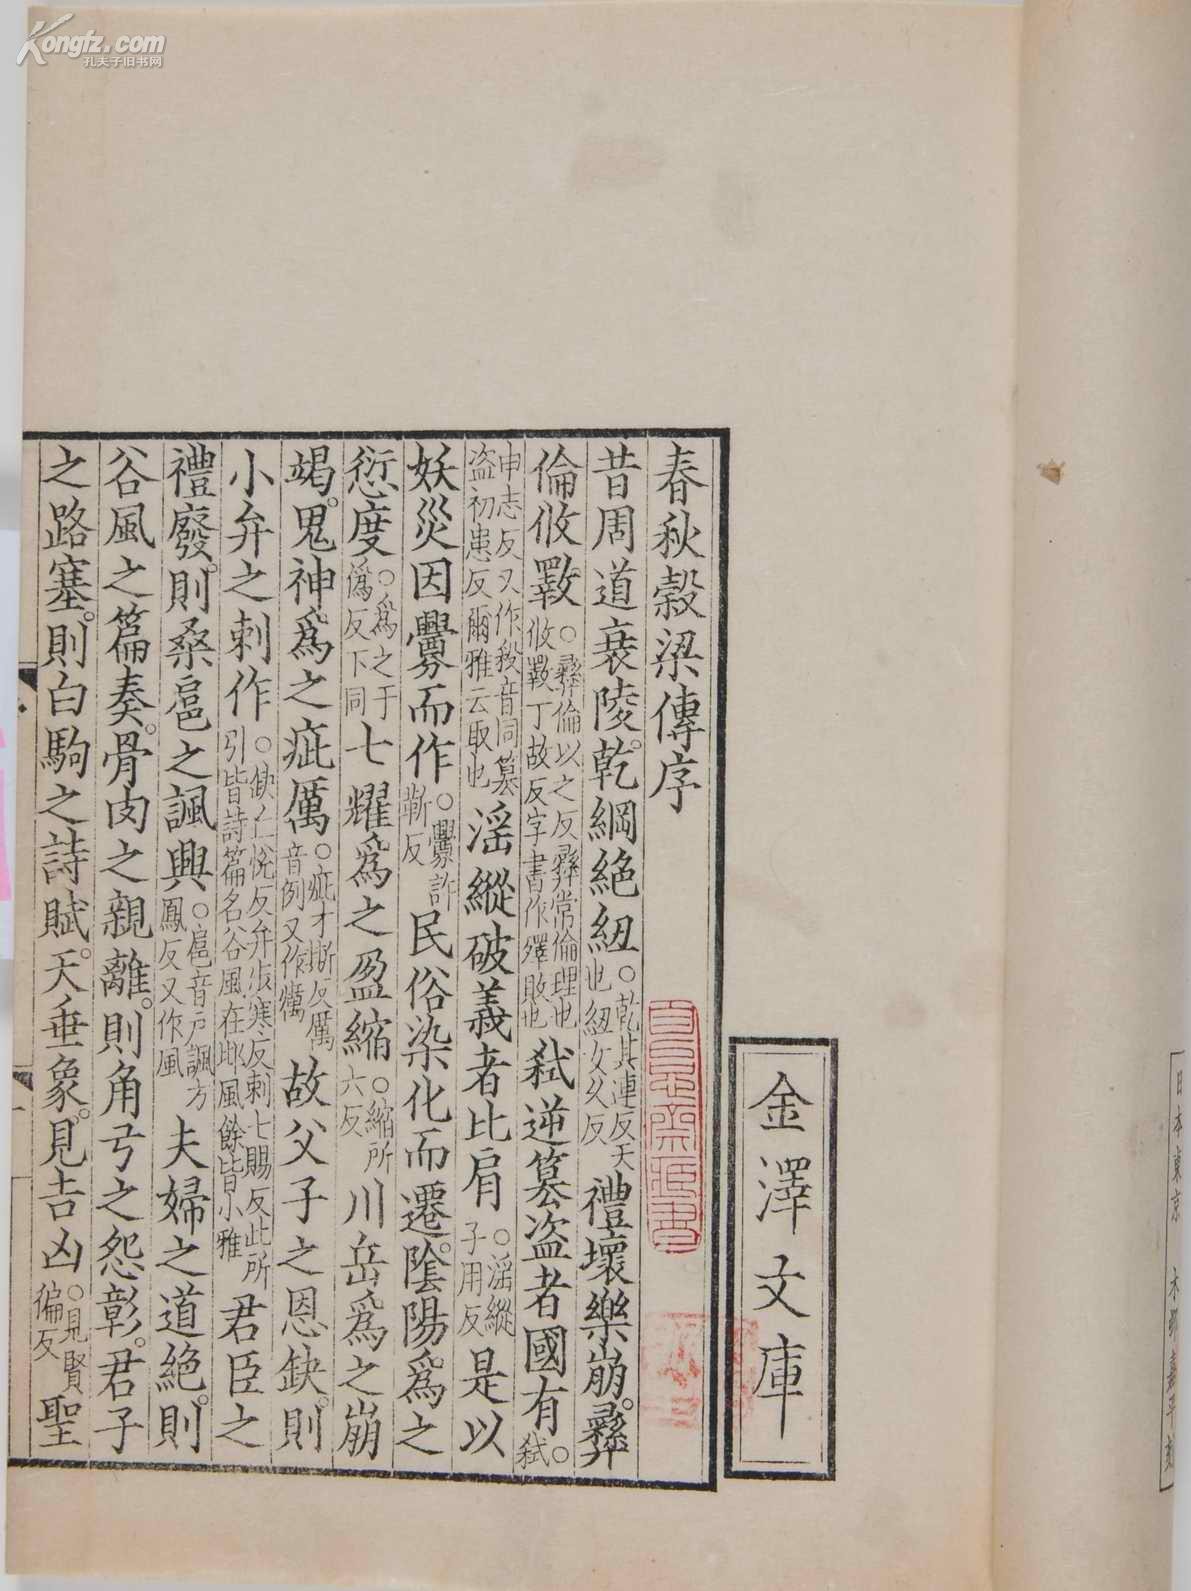 Kongfz.com
孔夫子旧书网
日本東京 木邨嘉平刻
金澤文庫
春秋穀梁傳序
昔周道衰陵乾綱絕紐○乾其連反天也紐女久反禮壞樂崩彝
倫攸斁○彝倫以之反彝常倫理也攸斁丁故反字書作殬敗也弑逆篡盗者國有○弑
申志反又作殺音同篡盗初患反爾雅云取也淫縱破義者比肩○淫縱子用反是以
妖災因釁而作○釁許靳反民俗染化而遷陰陽爲之
愆度○爲之于僞反下同七耀爲之盈縮○縮所六反川岳爲之崩
竭鬼神爲之疵厲○疵才斯反厲音例又作癘故父子之恩缺則
小弁之刺作○缺丘悅反弁步寒反刺七賜反此所引皆詩篇名谷風在邶風餘皆小雅君臣之
禮廢則桑扈之諷興○扈音戶諷方鳳反又作風夫婦之道絕則
谷風之篇奏骨肉之親離則角弓之怨彰君子
之路塞則白駒之詩賦天垂象見吉凶○見賢徧反聖